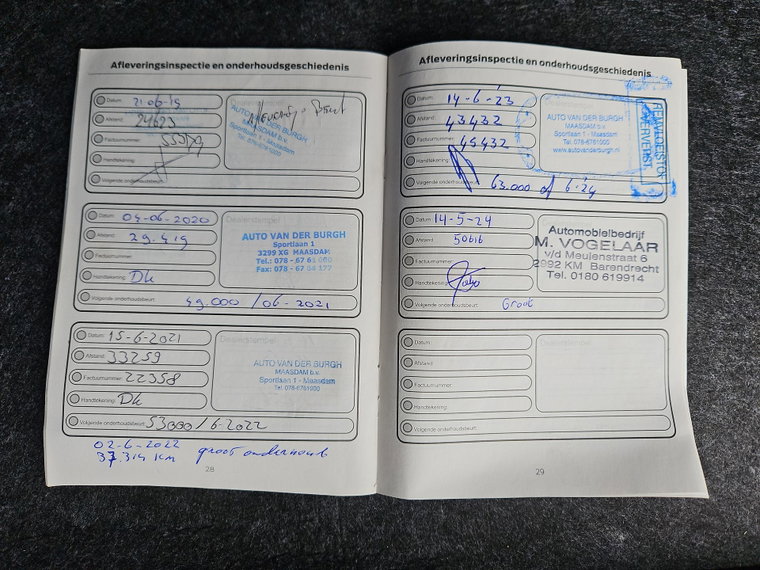 Afleveringsinspectie en onderhoudsgeschiedenis
Datum: 21-06-19
Afstand: 24623
Factuurnummer:
Handtekening:
Volgende onderhoudsbeurt:
Beurt
AUTO VAN DER BURGH
MAASDAM b.v.
Sportlaan 1 - Maasdam
Tel. 078-6761900
Datum: 04-06-2020
Afstand: 29.419
Factuurnummer:
Handtekening: Dk
Volgende onderhoudsbeurt: 49.000 / 06-2021
Dealerstempel
AUTO VAN DER BURGH
Sportlaan 1
3299 XG MAASDAM
Tel.: 078 - 67 61
Fax: 078 - 67 04 177
Datum: 15-6-2021
Afstand: 33259
Factuurnummer: 22358
Handtekening: Dk
Volgende onderhoudsbeurt: 53000/6-2022
Dealerstempel
AUTO VAN DER BURGH
MAASDAM b.v.
Sportlaan 1 - Maasdam
Tel. 078-6761900
02-6-2022
37.314 KM groot onderhoud
28
Afleveringsinspectie en onderhoudsgeschiedenis
Datum: 14-6-23
Afstand: 43432
Factuurnummer: 45432
Handtekening:
Volgende onderhoudsbeurt: 63.000 of 6-24
AUTO VAN DER BURGH
MAASDAM b.v.
Sportlaan 1 - Maasdam
Tel. 078-6761900
www.autovanderburgh.nl
REMVLOEISTOF
VERVERST
Datum: 14-5-24
Afstand: 50616
Factuurnummer:
Handtekening:
Volgende onderhoudsbeurt: Groot
Automobielbedrijf
M. VOGELAAR
v/d Meulenstraat 6
2992 KM Barendrecht
Tel. 0180 619914
Datum:
Afstand:
Factuurnummer:
Handtekening:
Volgende onderhoudsbeurt:
Dealerstempel
29